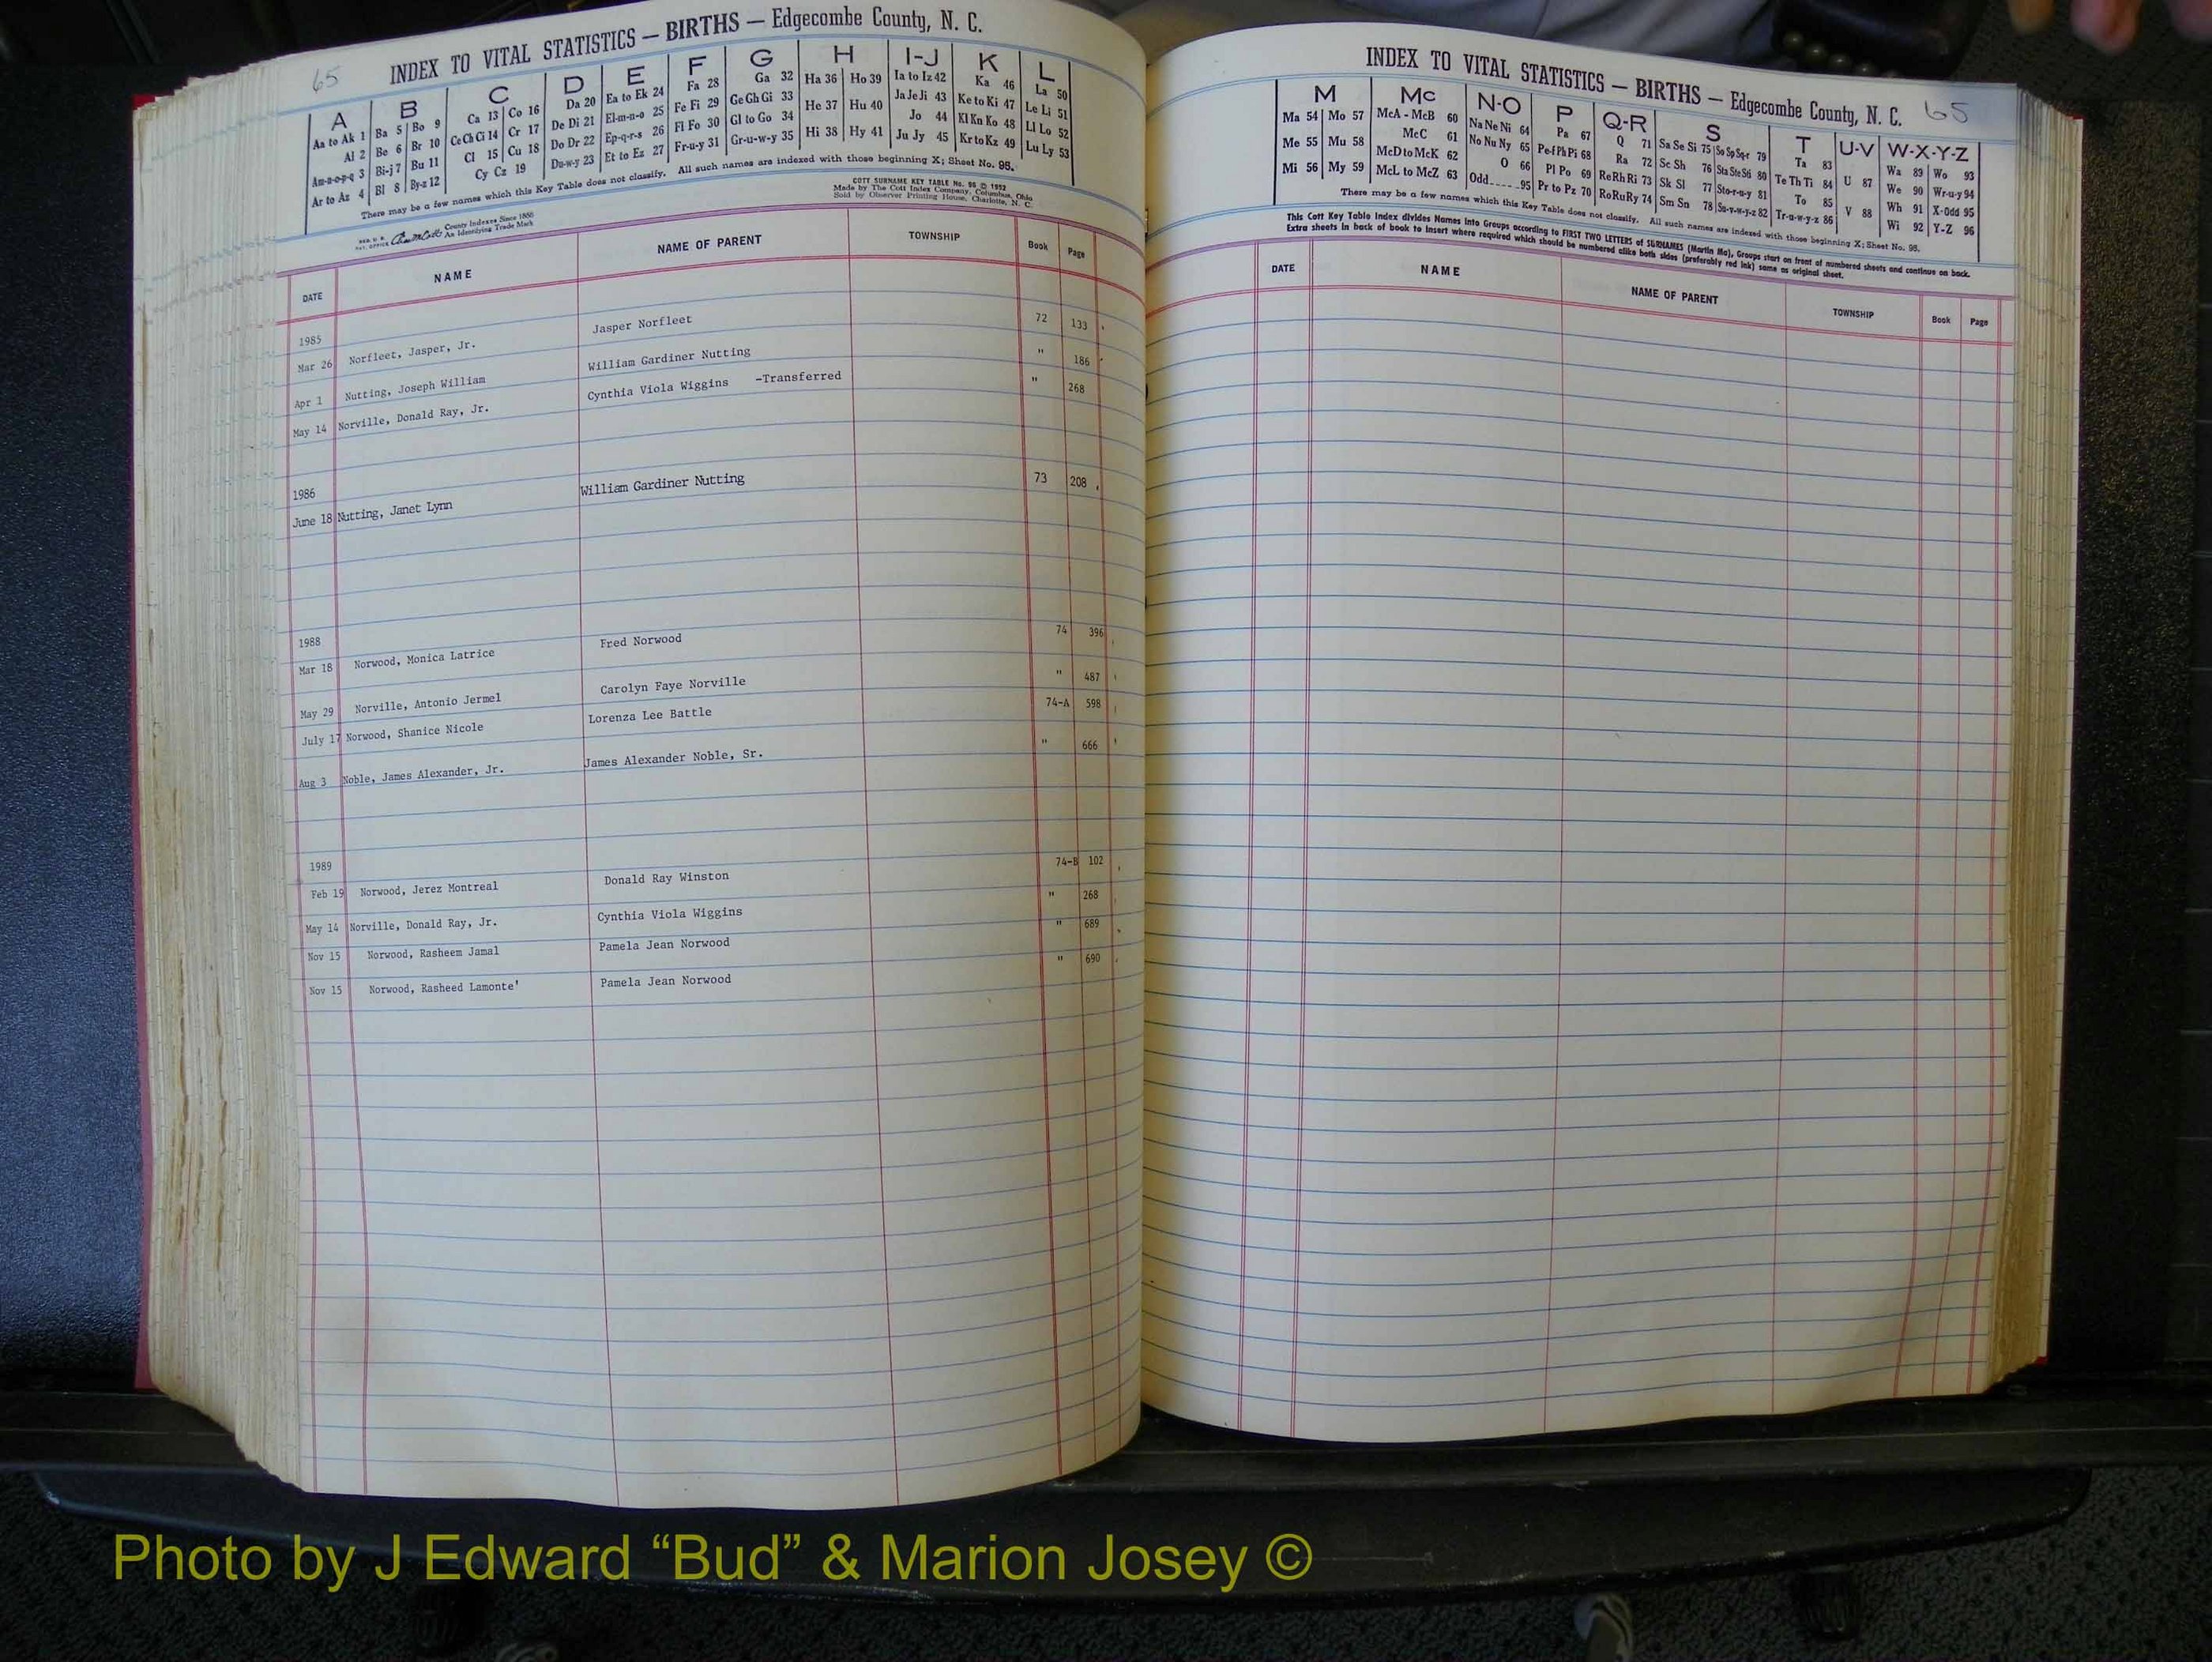 65
INDEX TO VITAL STATISTICS — BIRTHS — Edgecombe County, N. C.
A B C D E F G H I-J K L
Aa to Ak 1 Ba 5 Bo 9 Ca 13 Co 16 Da 20 Ea to Ek 24 Fa 28 Ga 32 Ha 36 Ho 39 Ia to Iz 42 Ka 46 La 50
Al 2 Be 6 Br 10 Ce Ch Ci 14 Cr 17 De Di 21 El-m-n-o 25 Fe Fi 29 Ge Gh Gi 33 He 37 Hu 40 Ja Je Ji 43 Ke to Ki 47 Le Li 51
Am-n-o-p-q 3 Bi-j 7 Bu 11 Cl 15 Cu 18 Do Dr 22 Ep-q-r-s 26 Fl Fo 30 Gl to Go 34 Hi 38 Hy 41 Jo 44 Kl Kn Ko 48 Ll Lo 52
Ar to Az 4 Bl 8 By-z 12 Cy Cz 19 Du-w-y 23 Et to Ez 27 Fr-u-y 31 Gr-u-w-y 35 Ju Jy 45 Kr to Kz 49 Lu Ly 53
There may be a few names which this Key Table does not classify. All such names are indexed with those beginning X; Sheet No. 95.
COTT SURNAME KEY TABLE No. 96 © 1952
Made by The Cott Index Company, Columbus, Ohio
Sold by Observer Printing House, Charlotte, N. C.
County Indexes Since 1888
An Identifying Trade Mark
DATE NAME NAME OF PARENT TOWNSHIP Book Page
1985
Mar 26 Norfleet, Jasper, Jr. Jasper Norfleet 72 133
Apr 1 Nutting, Joseph William William Gardiner Nutting " 186
May 14 Norville, Donald Ray, Jr. Cynthia Viola Wiggins -Transferred " 268
1986
June 18 Nutting, Janet Lynn William Gardiner Nutting 73 208
1988
Mar 18 Norwood, Monica Latrice Fred Norwood 74 396
May 29 Norville, Antonio Jermel Carolyn Faye Norville " 487
July 17 Norwood, Shanice Nicole Lorenza Lee Battle 74-A 598
Aug 3 Noble, James Alexander, Jr. James Alexander Noble, Sr. " 666
1989
Feb 19 Norwood, Jerez Montreal Donald Ray Winston 74-B 102
May 14 Norville, Donald Ray, Jr. Cynthia Viola Wiggins " 268
Nov 15 Norwood, Rasheem Jamal Pamela Jean Norwood " 689
Nov 15 Norwood, Rasheed Lamonte' Pamela Jean Norwood " 690
INDEX TO VITAL STATISTICS — BIRTHS — Edgecombe County, N. C.
65
M Mc N-O P Q-R S T U-V W-X-Y-Z
Ma 54 Mo 57 McA - McB 60 Na Ne Ni 64 Pa 67 Q 71 Sa Se Si 75 So Sp Sq-r 79 Ta 83 U 87 Wa 89 Wo 93
Me 55 Mu 58 McC 61 No Nu Ny 65 Pe-f Ph Pi 68 Ra 72 Sc Sh 76 Sta Ste Sti 80 Te Th Ti 84 V 88 We 90 Wr-u-y 94
Mi 56 My 59 McD to McK 62 O 66 Pl Po 69 Re Rh Ri 73 Sk Sl 77 Sto-r-u-y 81 To 85 Wh 91 X-Odd 95
McL to McZ 63 Odd 95 Pr to Pz 70 Ro Ru Ry 74 Sm Sn 78 Su-v-w-y-z 82 Tr-u-w-y-z 86 Wi 92 Y-Z 96
There may be a few names which this Key Table does not classify. All such names are indexed with those beginning X; Sheet No. 95.
This Cott Key Table Index divides Names into Groups according to FIRST TWO LETTERS of SURNAMES (Martin Ma), Groups start on front of numbered sheets and continue on back.
Extra sheets in back of book to insert where required which should be numbered alike both sides (preferably red ink) same as original sheet.
DATE NAME NAME OF PARENT TOWNSHIP Book Page
Photo by J Edward “Bud” & Marion Josey ©